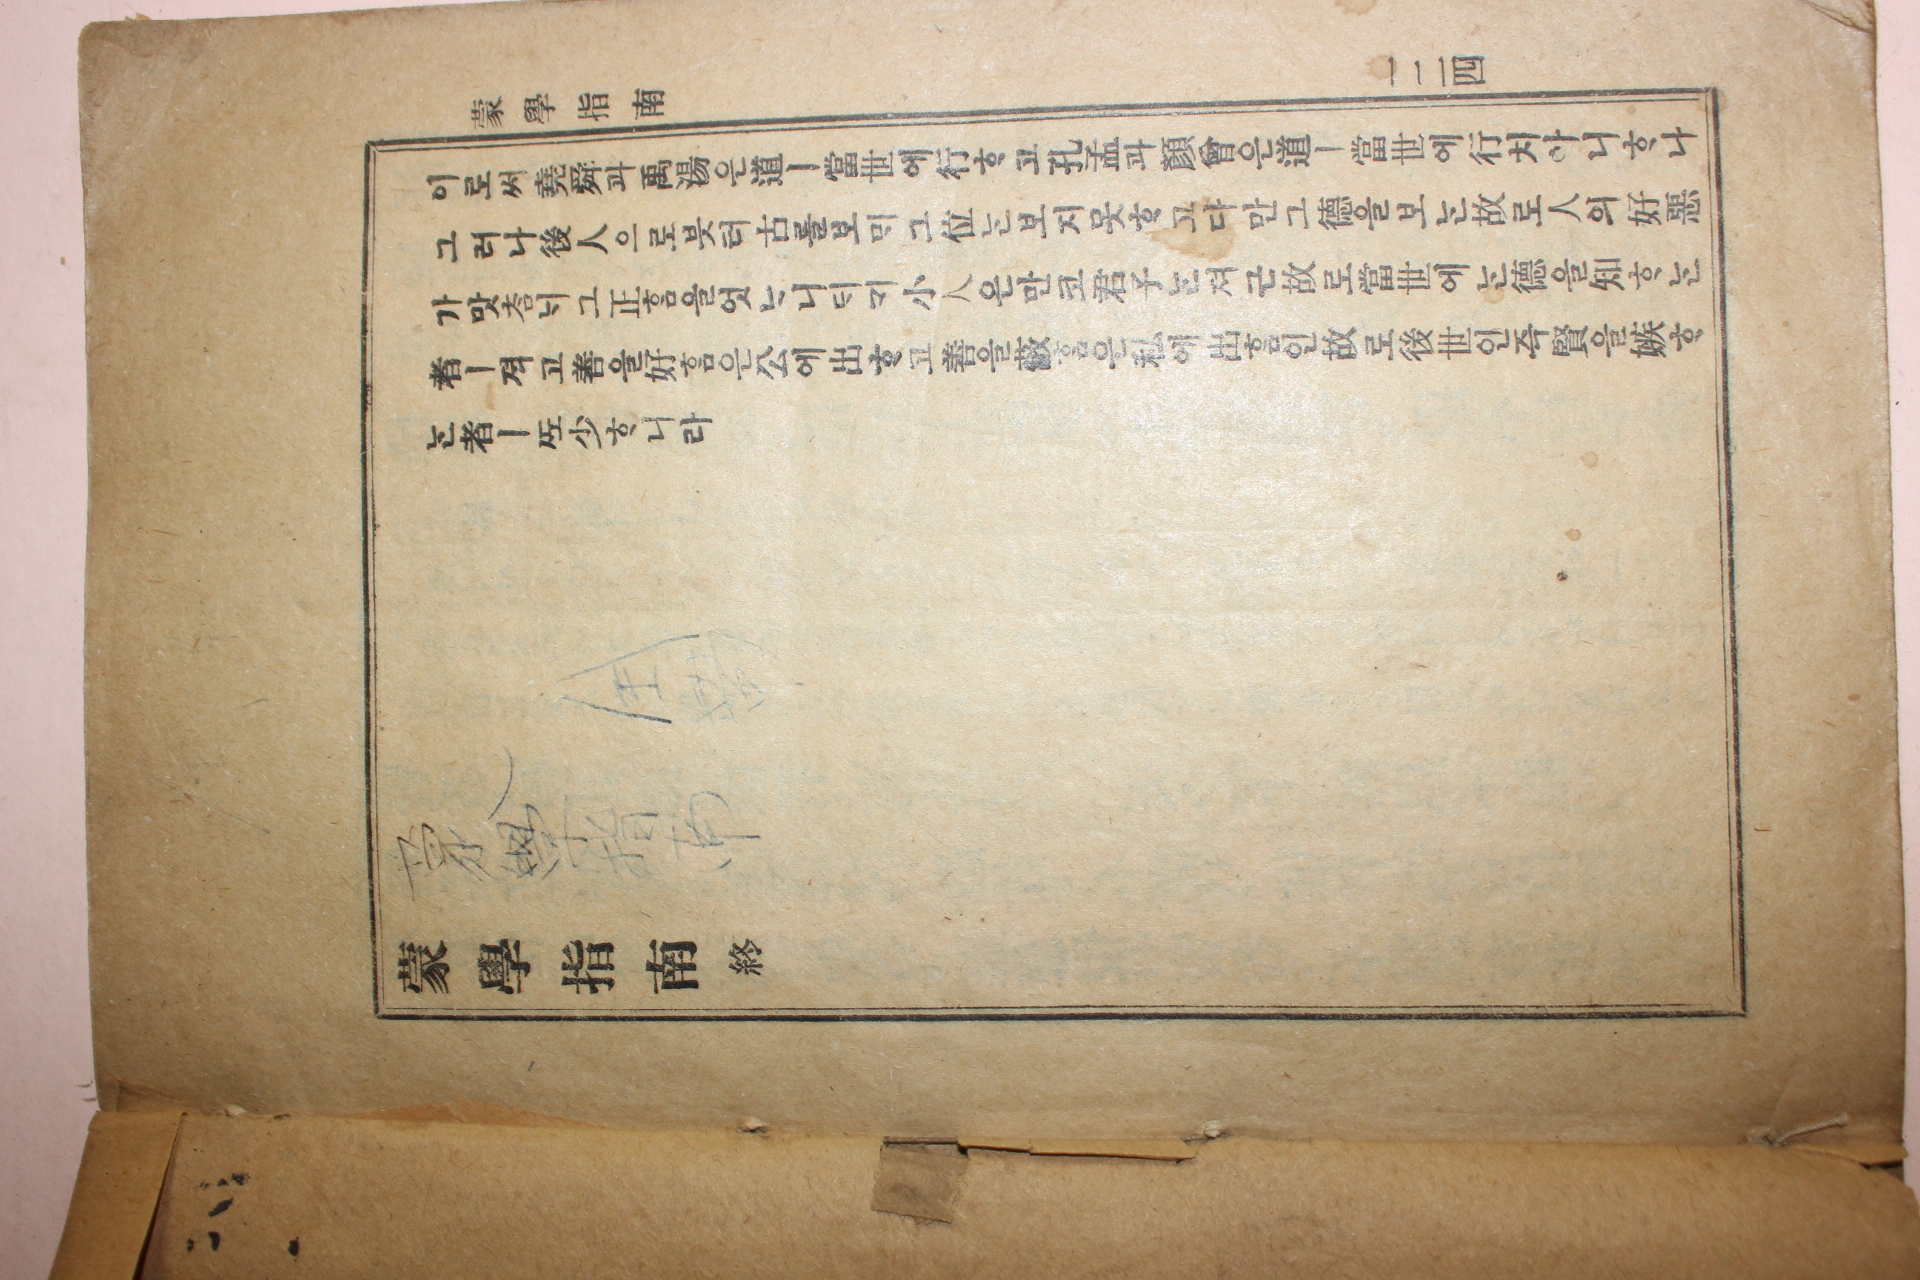 蒙學指南
一二四
이로써堯舜과禹湯은道ㅣ當世에行ᄒᆞ고孔孟과顔曾은道ㅣ當世에行치아니ᄒᆞ나
그러나後人으로붓터古를보ᄆᆡ그位ᄂᆞᆫ보지못ᄒᆞ고다만그德을보ᄂᆞᆫ故로人의好惡
가맛ᄎᆞᆷᄂᆡ그正홈을엇ᄂᆞ니ᄃᆡ기小人은만코君子ᄂᆞᆫ져근故로當世에ᄂᆞᆫ德을知ᄒᆞᄂᆞᆫ
者ㅣ져고善을好홈은公에出ᄒᆞ고善을蔽홈은私에出홈인故로後世인즉賢을嫉ᄒᆞ
ᄂᆞᆫ者ㅣ ᄯᅩ少ᄒᆞ니라
人
蒙學指南
蒙學指南 終